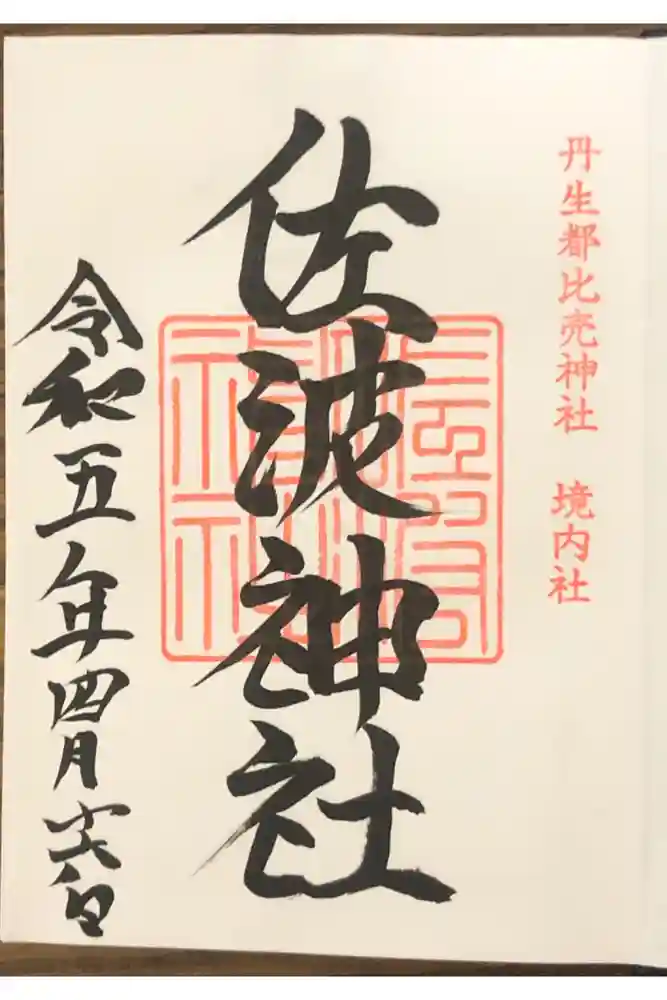 丹生都比売神社　境内社
佐波神社
令和五年四月廿六日